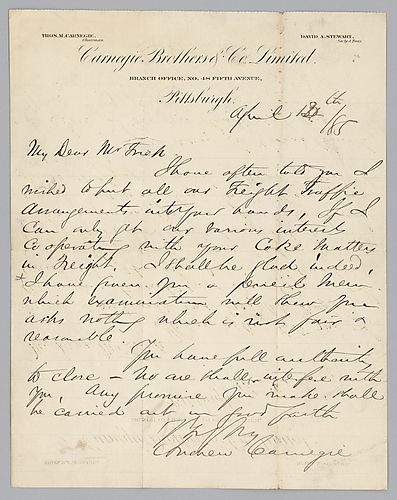 THOS. M. CARNEGIE,
Chairman.
DAVID A. STEWART,
Sec'y & Treas.
Carnegie Brothers & Co. Limited.
BRANCH OFFICE, NO. 48 FIFTH AVENUE,
Pittsburgh.
April 13th /85
My Dear Mr Frick
I have often told you I
wished to put all our Freight Traffic
arrangements into your hands, If I
can only get our various interests
Cooperating with your Coke Matters
in Freight. I shall be glad indeed,
I have given you a pencil Mem
which examination will show you
asks nothing which is not fair &
reasonable.
You have full authority
to close – No one shall interfere with
you, Any promise you make shall
be carried out in good faith
Andrew Carnegie